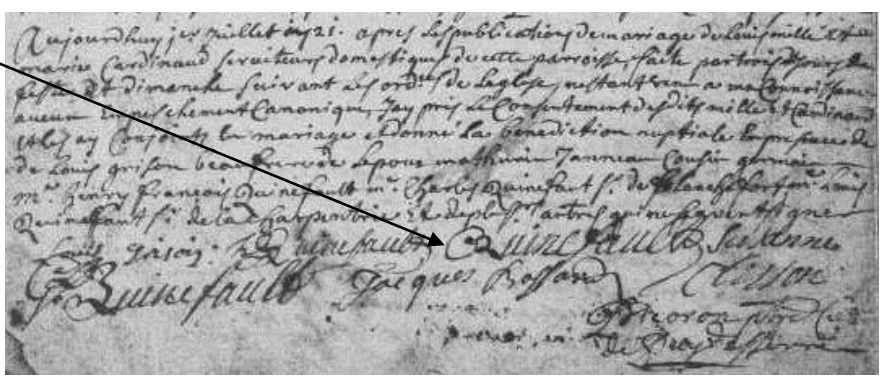 Aujourdhuy jer Juillet 1721. apres les publications de mariage de Louis mille et de
marie Cardinaud serviteurs domestiques de cette parroisse, faite par trois jours de
feste et dimanche suivant les ordres de leglise, nestant venu a ma Connoissance
aucun empeschement Canonique, Jay pris le Consentement desdits mille et Cardinaud
et les ay Conjoints en mariage et donné la benediction nuptiale en presence de
de Louis grison beaufrere de lepoux mathurin Janneau Cousin germain
mr. henry françois Quinefault mr. Charles Quinefaut sr. de Louis
Quinefaut sr. de la Charpentrie et de plusrs. autres qui ne signent
Louis grison Quinefault Quinefault Susanne
Quinefault Jacques Bossard Clisson